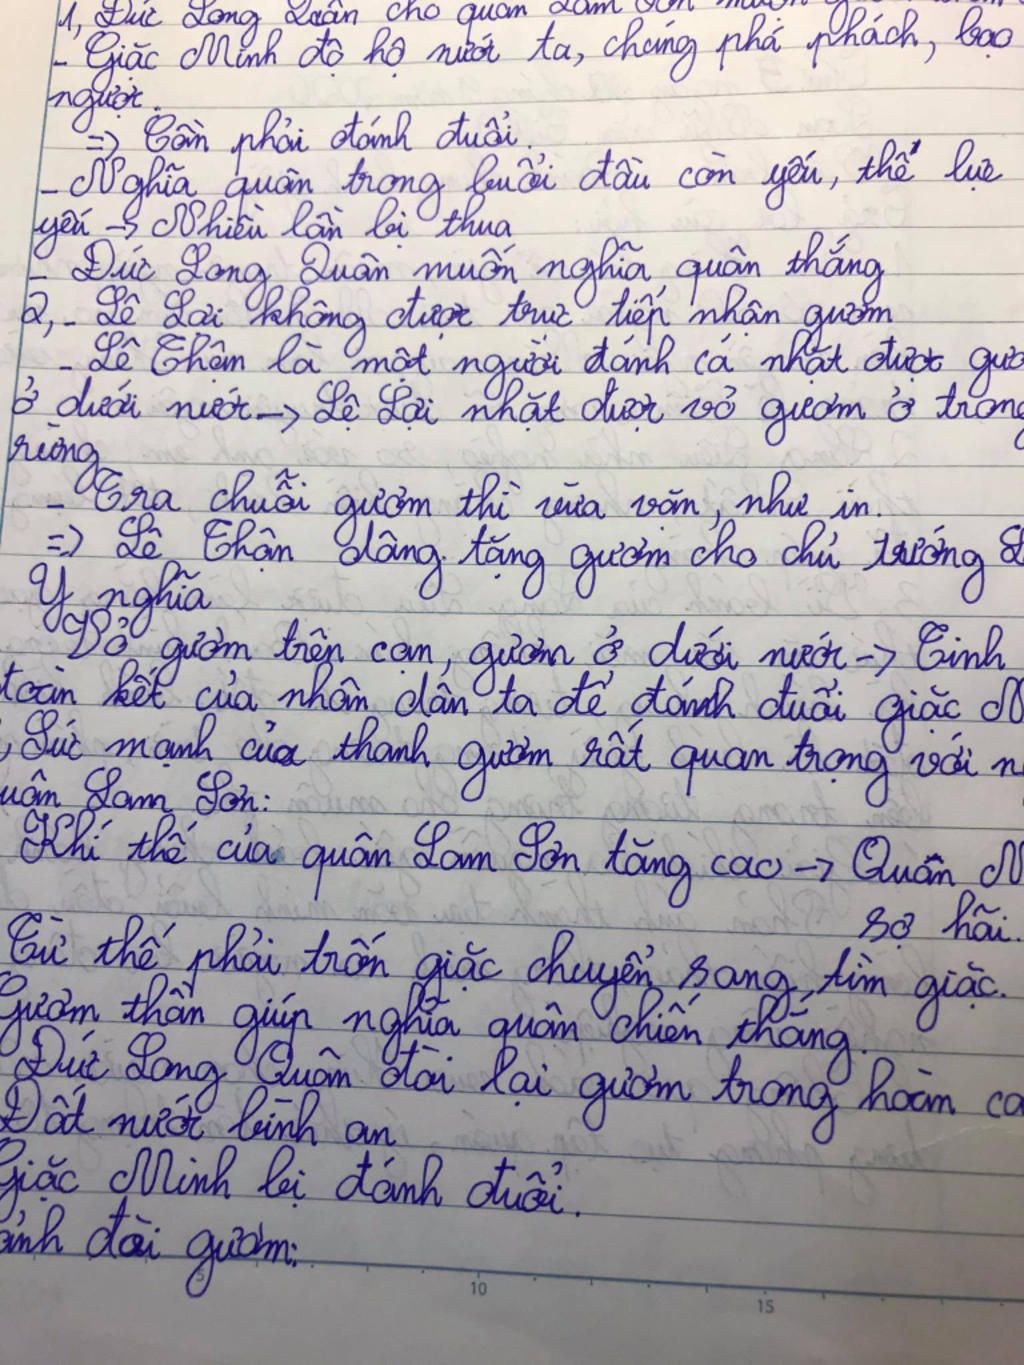 1, Đức Long Quân cho quân Lam Sơn mượn
- Giặc Minh đô hộ nước ta, chúng phá phách, bạo
ngược.
=> Cần phải đánh đuổi.
- Nghĩa quân trong buổi đầu còn yếu, thế lực
yếu -> Nhiều lần bị thua
- Đức Long Quân muốn nghĩa quân thắng
2, - Lê Lợi không được trực tiếp nhận gươm
- Lê Thận là một người đánh cá nhặt được gươ
ở dưới nước -> Lê Lợi nhặt được vỏ gươm ở trong
rừng
- Tra chuỗi gươm thì vừa vặn, như in.
=> Lê Thận dâng tặng gươm cho chủ tướng L
Ý nghĩa
Vỏ gươm trên cạn, gươm ở dưới nước -> Tinh
toàn kết của nhân dân ta để đánh đuổi giặc M
, Sức mạnh của thanh gươm rất quan trọng với n
uân Lam Sơn:
Khí thế của quân Lam Sơn tăng cao -> Quân M
sợ hãi.
Từ thế phải trốn giặc chuyển sang tìm giặc.
Gươm thần giúp nghĩa quân chiến thắng.
Đức Long Quân đòi lại gươm trong hoàn cả
Đất nước bình an
Giặc Minh bị đánh đuổi.
ảnh đòi gươm:
5 10 15